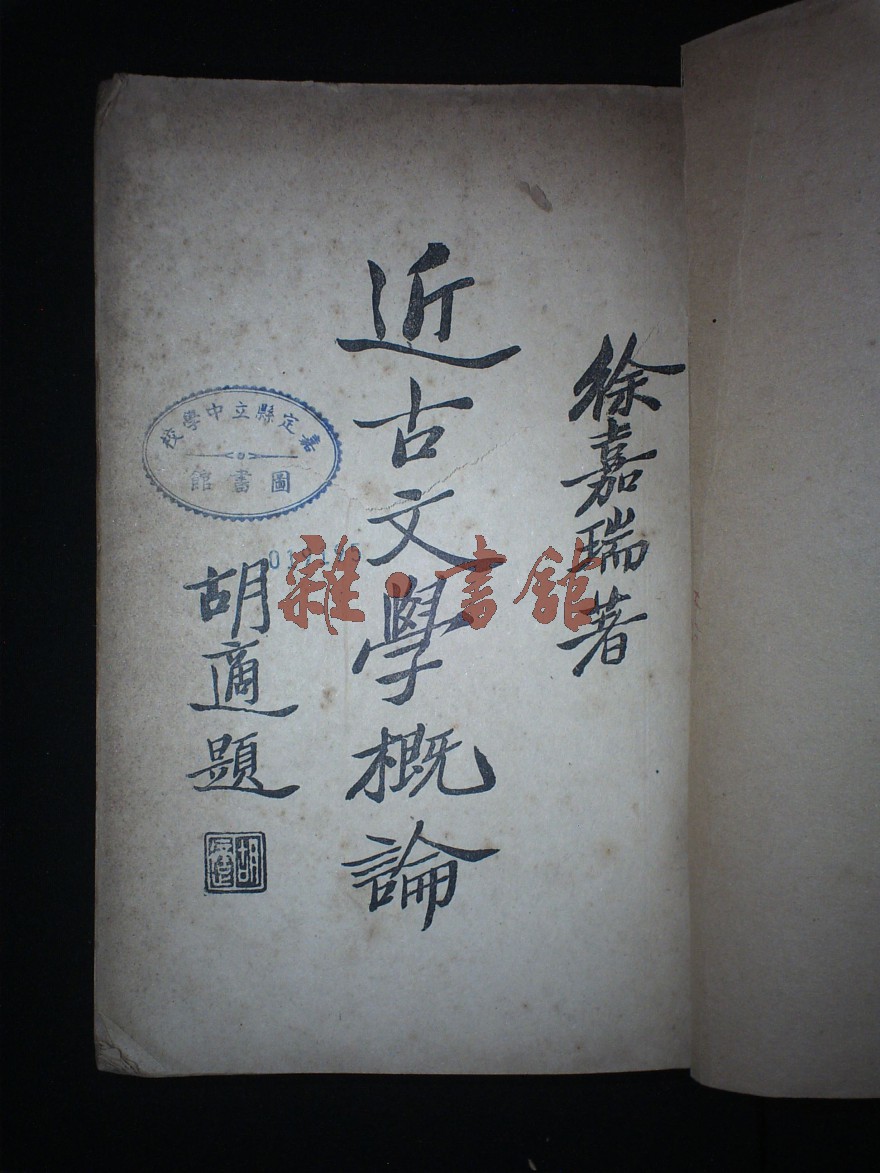 徐嘉瑞著
近古文學概論
胡適題
胡適
嘉定縣立中學校
圖書館
雜·書館